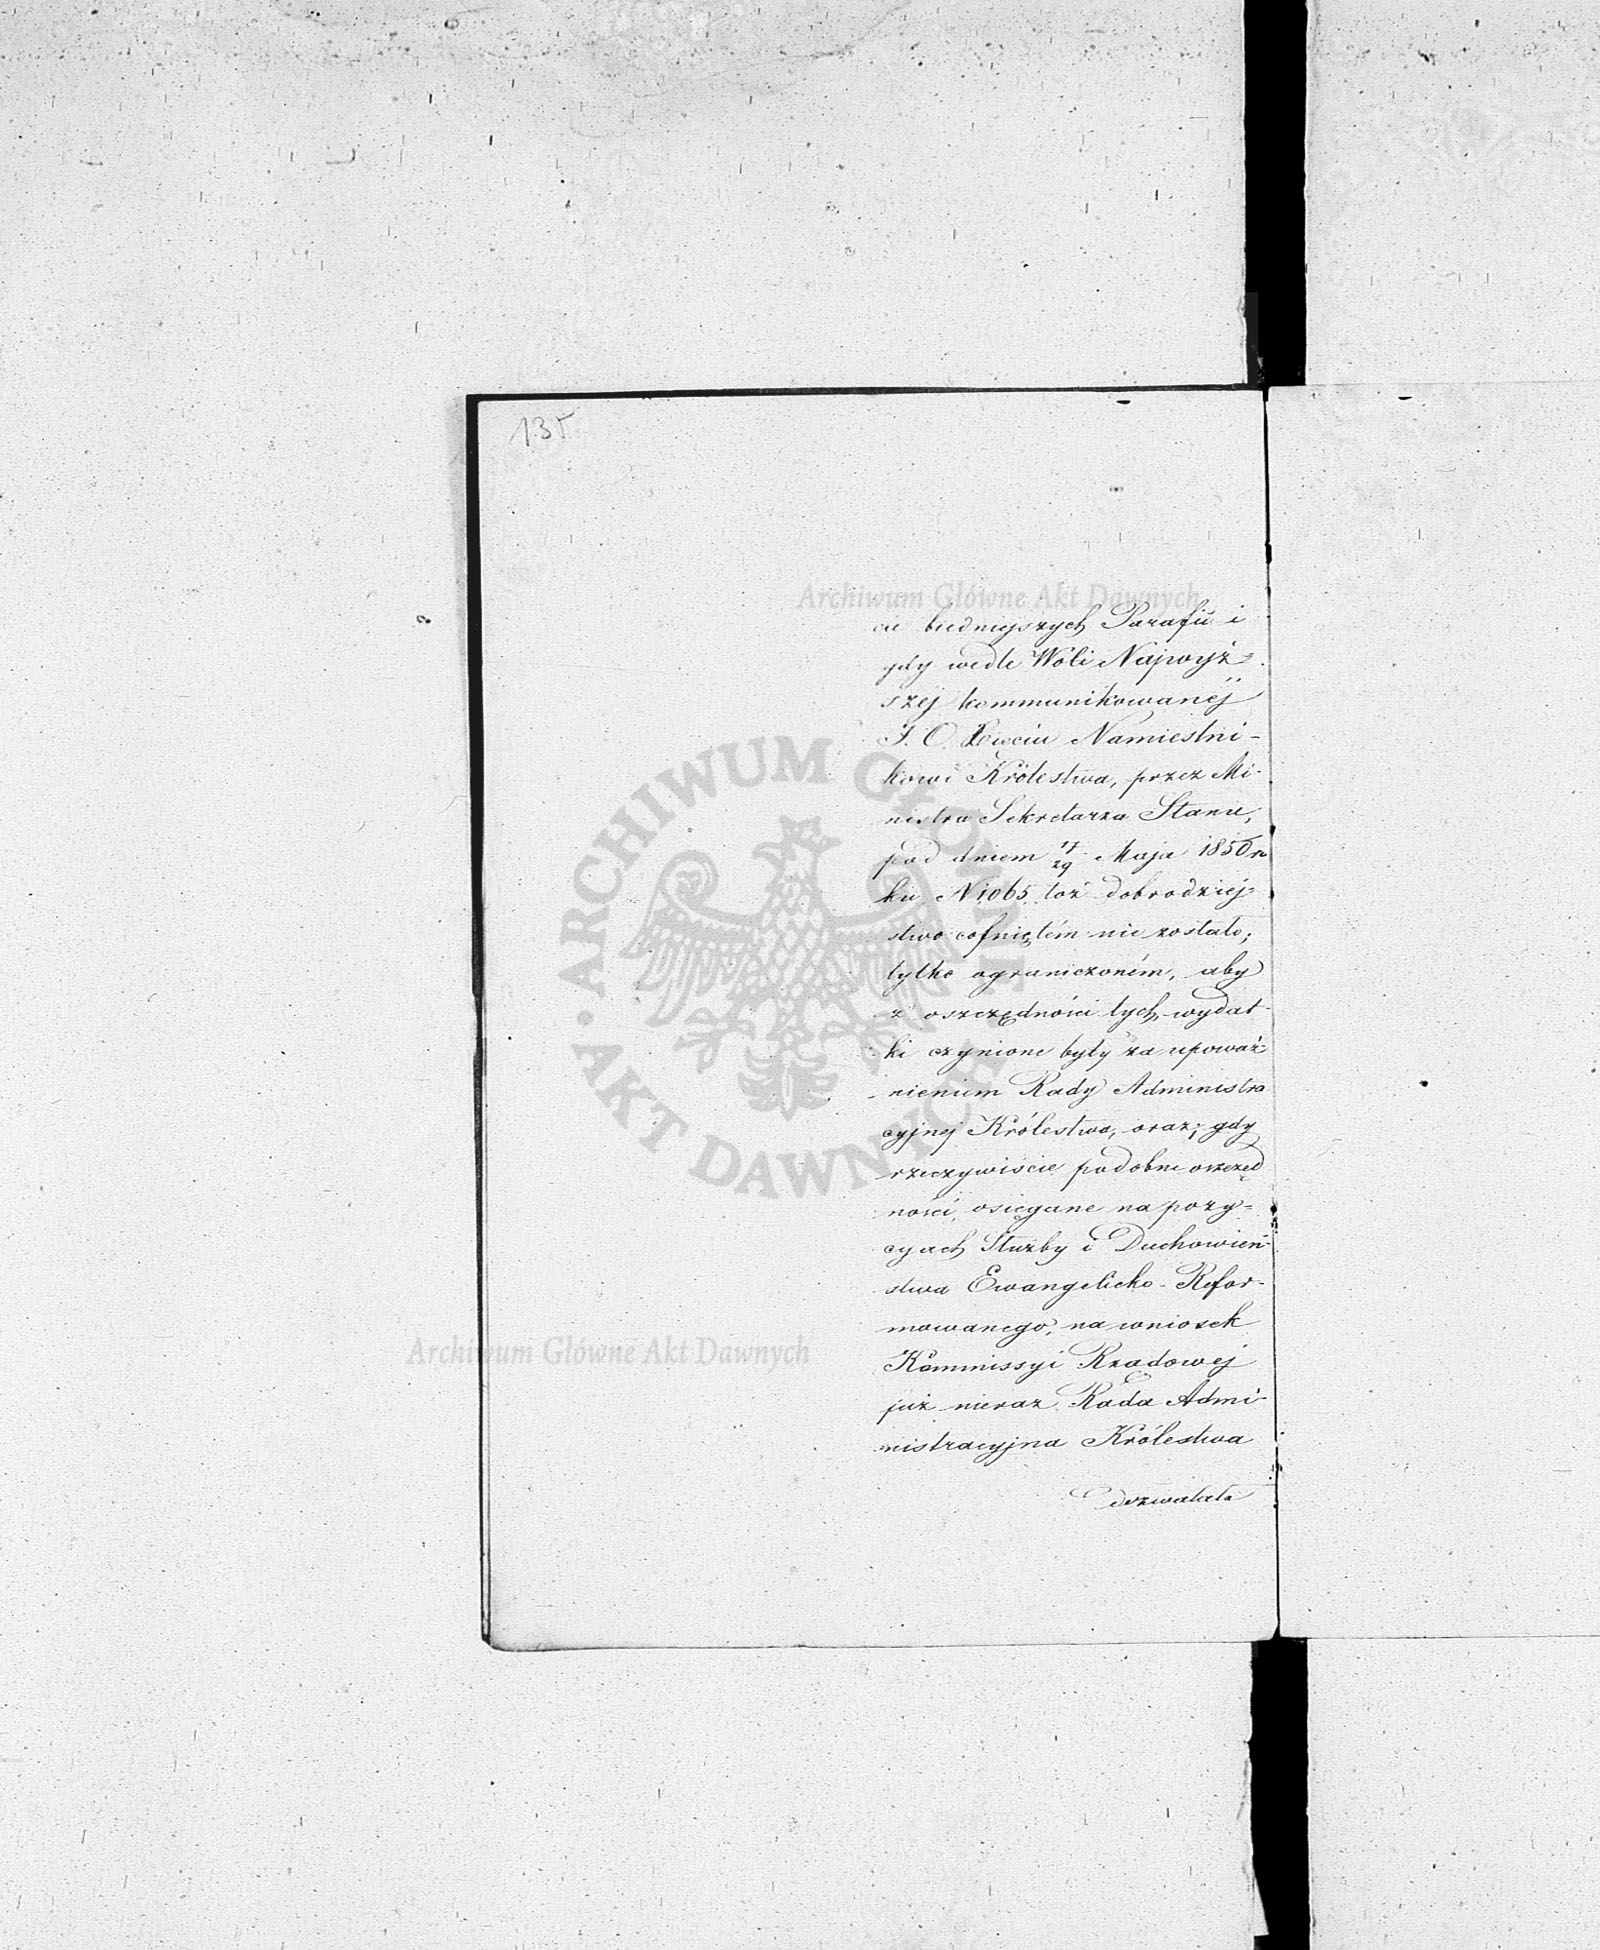 135
Archiwum Główne Akt Dawnych
cie biedniejszych Parafii i
gdy wedle Wóli Najwyż=
szej kommunikowanéj
J. O. Xięciu Namiestni-
kowi Królestwa, przez Mi-
nistra Sekretarza Stanu,
pod dniem 17/29 Maja 1850 ro
ku N 1065 toż dobrodziej=
stwo cofniętém nie zostało;
tylko ograniczoném, aby
z oszczędności tych, wydat-
ki czynione były za upoważ=
nieniem Rady Administra
cyjnej Królestwa, oraz, gdy
rzeczywiście podobne oszczęd
ności, osięgane na pozy=
cyach Służby i Duchowień-
stwa Ewangelicko-Refor-
mowanego, na wniosek
Kommissyi Rządowej
już nieraz Rada Admi-
nistracyjna Królestwa
dozwalała
ARCHIWUM GŁÓWNE • AKT DAWNYCH •
Archiwum Główne Akt Dawnych